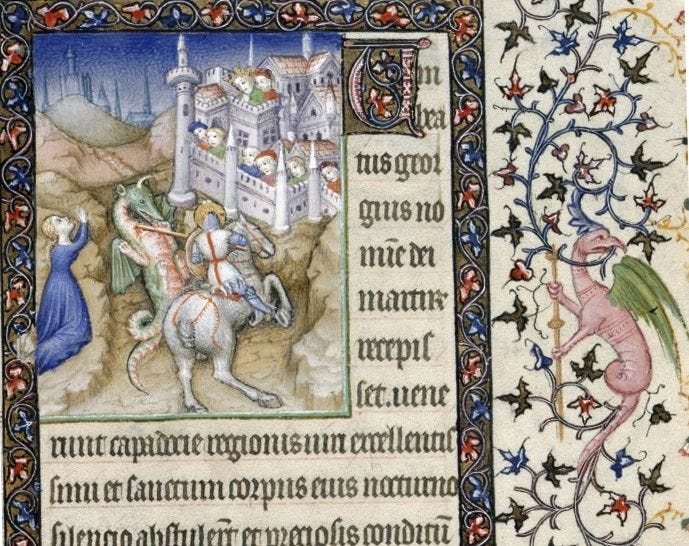 Cum
bea
tus geor
gius no
mīe dei
martir
recepis
set. uene
runt capadocie regionis uiri excellentis
simi et sanctum corpus eius nocturno
silencio abstuler̄t et preciosis conditū